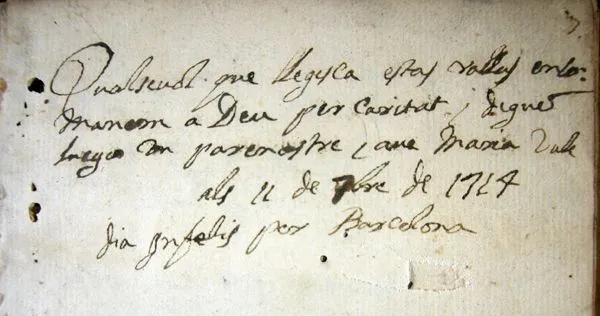 Qualsevol que llegisca estas rallas enco-
manem a Deu per caritat, y digue
luego un parenostre, y ave Maria Vale
als 11 de 7bre de 1714
dia infelis per Barcelona